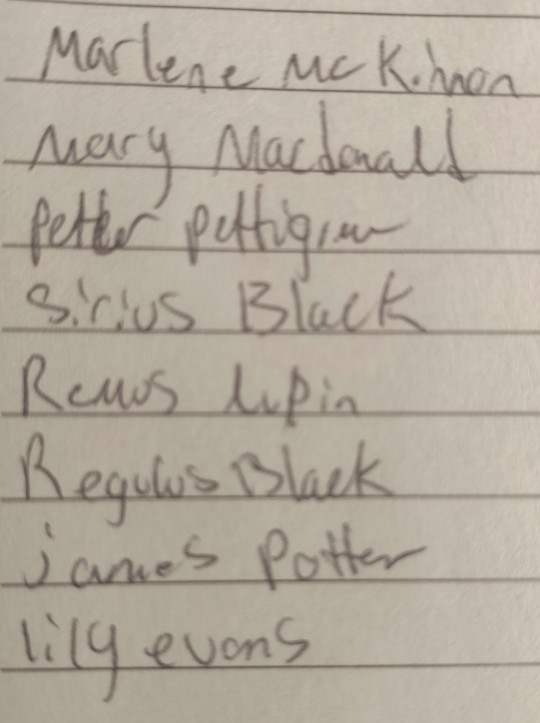 Marlene McKinnon
Mary Macdonald
Petter Pettigrew
Sirius Black
Remus lupin
Regulus Black
james Potter
lily evans